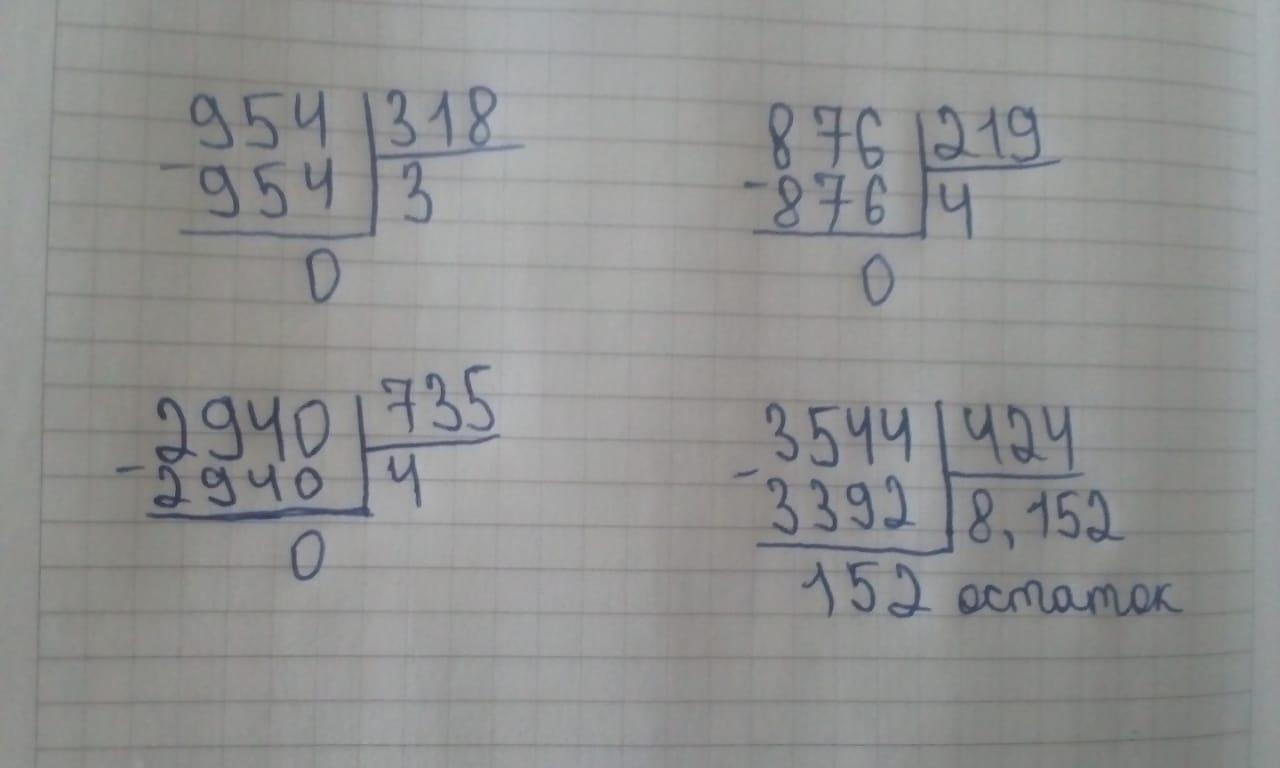 954 318
- 954 3
0
876 219
- 876 4
0
2940 735
- 2940 4
0
3544 424
- 3392 8,152
152 остаток